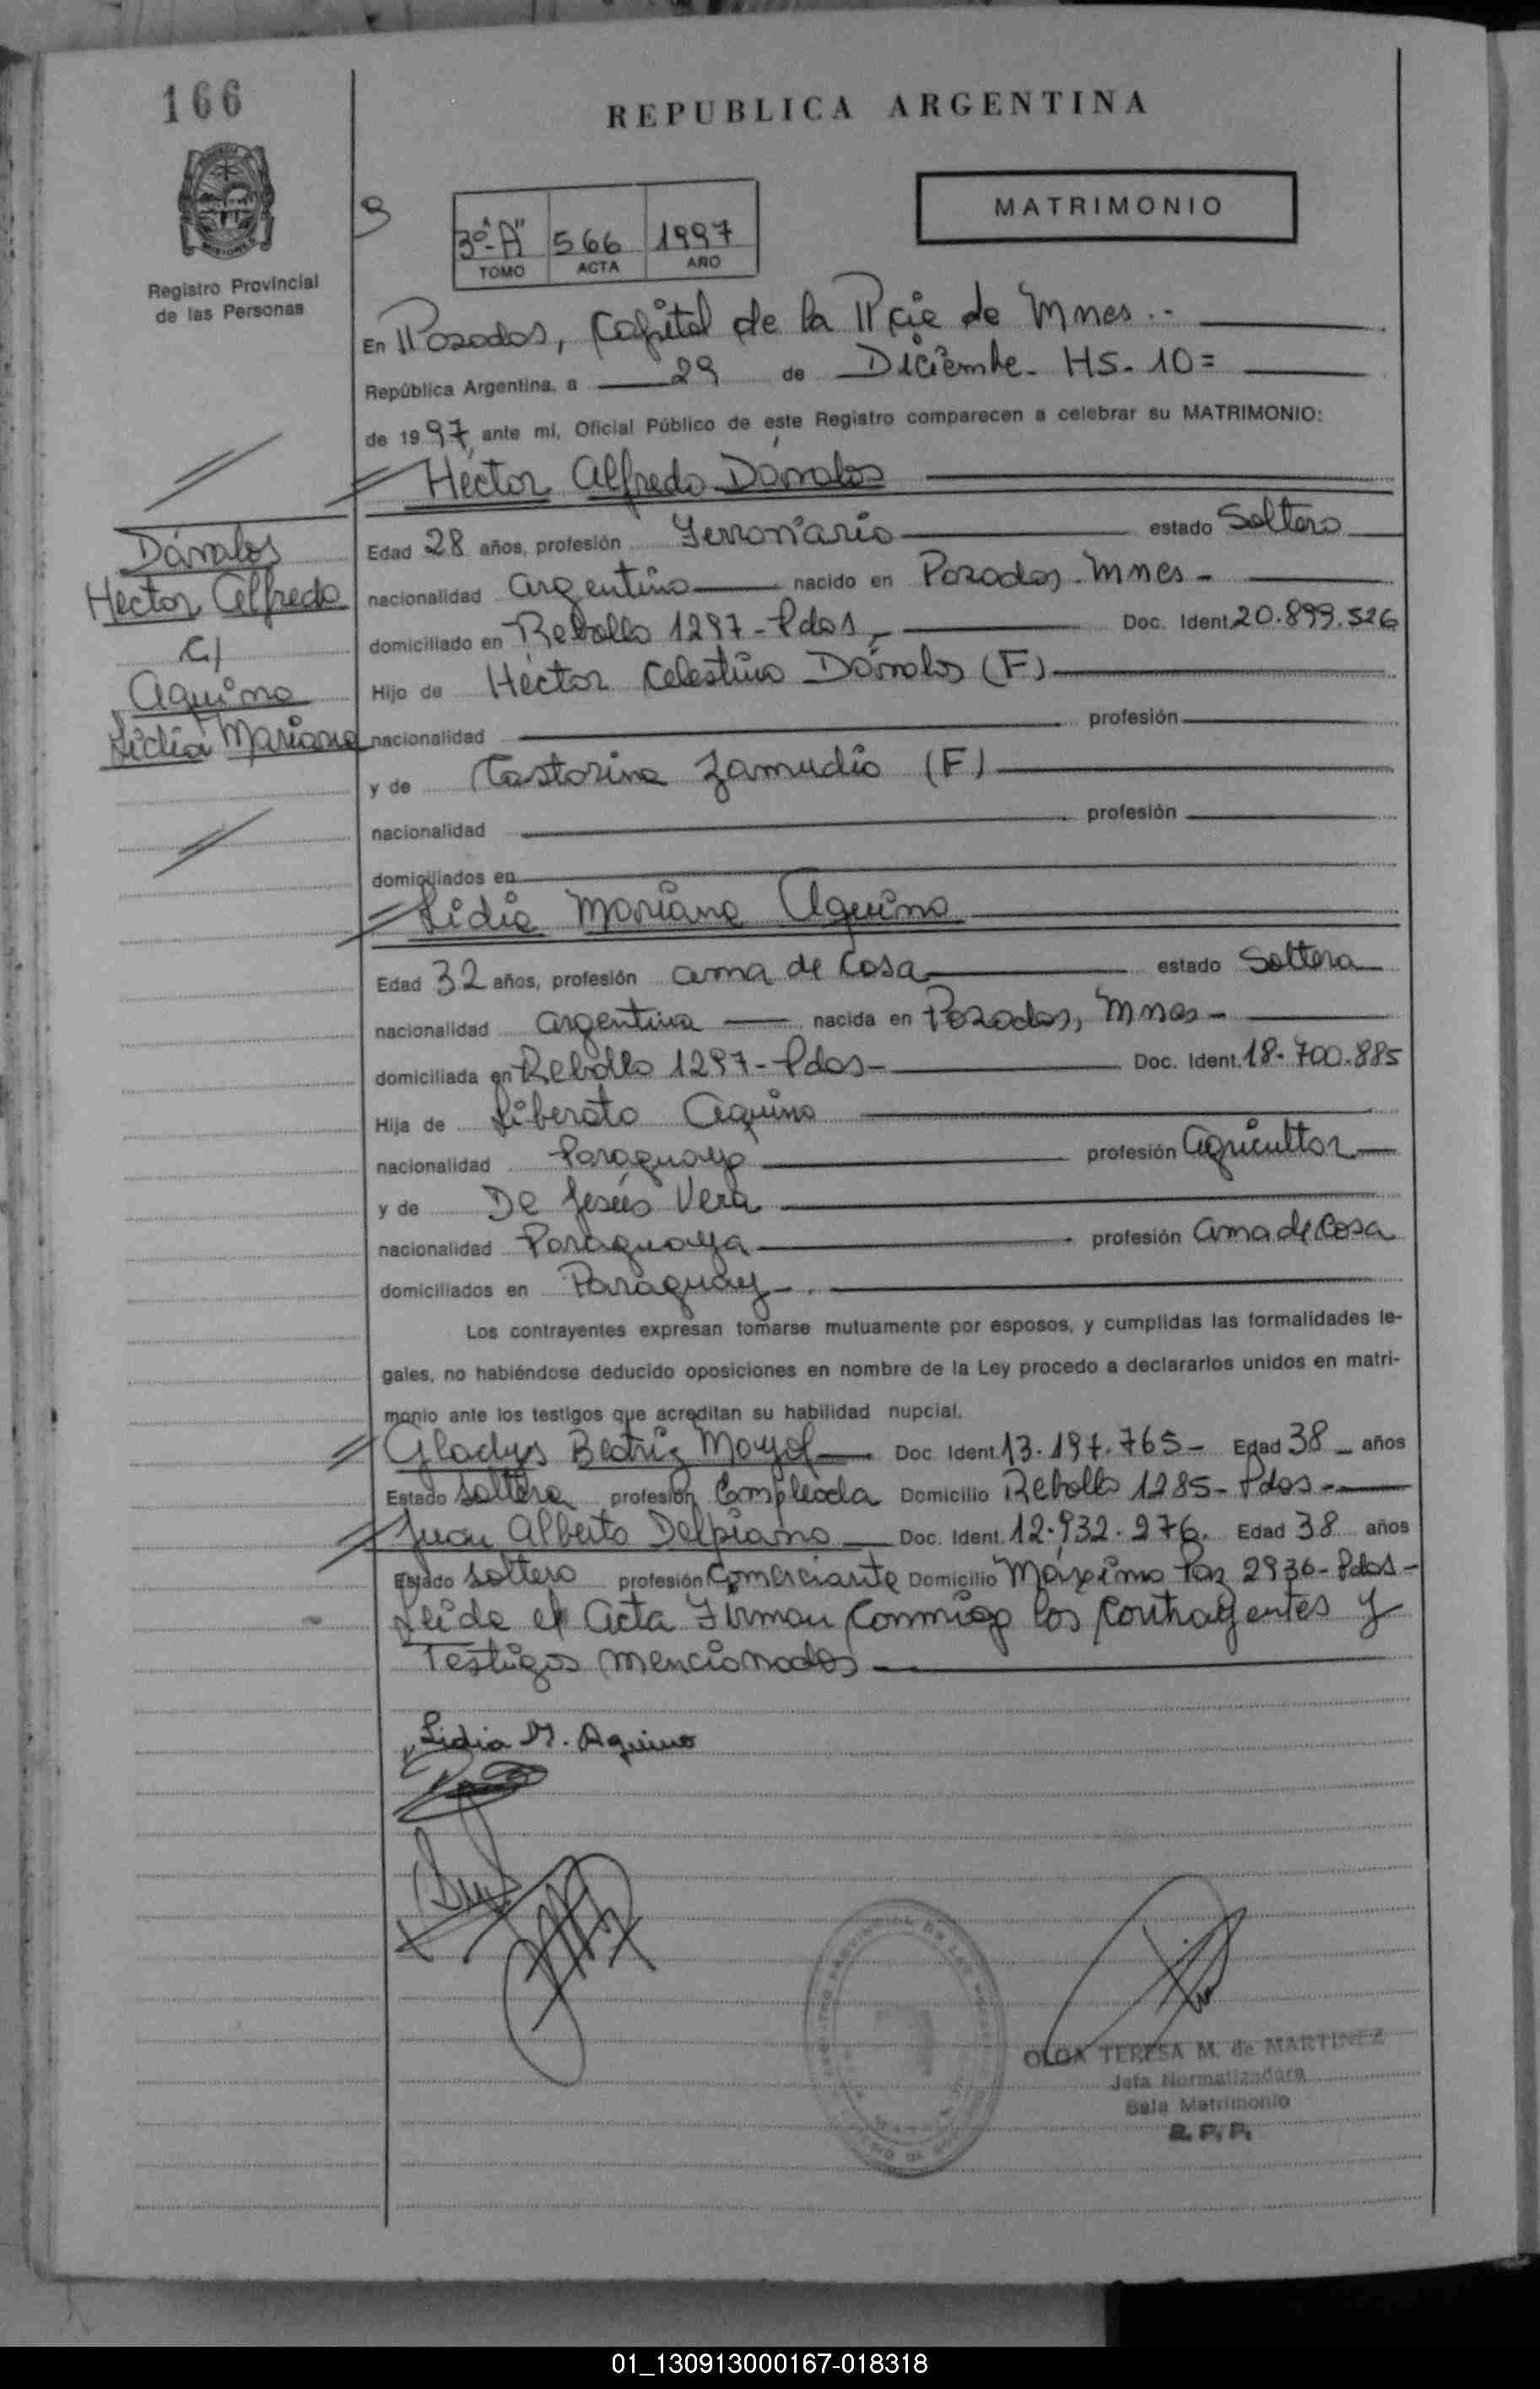 166
REPUBLICA ARGENTINA
MATRIMONIO
3º "A" 566 1997
TOMO ACTA AÑO
Registro Provincial
de las Personas
En Posadas, Capital de la Pcie de Mnes..
República Argentina, a 29 de Diciembre. HS. 10=
de 1997 ante mí, Oficial Público de este Registro comparecen a celebrar su MATRIMONIO:
Héctor Alfredo Dávalos
Dávalos
Hector Alfredo
c/
Aquino
Lidia Mariana
Edad 28 años, profesión Ferroviario estado Soltero
nacionalidad argentino nacido en Posadas. Mnes-
domiciliado en Rebollo 1297-Pdas, Doc. Ident. 20.899.526
Hijo de Héctor Celestino Dávalos (F)
nacionalidad profesión
y de Castorina Zamudio (F)
nacionalidad profesión
domiciliados en
Lidia Mariana Aquino
Edad 32 años, profesión ama de Casa estado Soltera
nacionalidad argentina nacida en Posadas, Mnes-
domiciliada en Rebollo 1297-Pdas- Doc. Ident. 18.700.885
Hija de Liberato Aquino
nacionalidad Paraguayo profesión agricultor
y de De Jesús Vera
nacionalidad Paraguaya profesión ama de Casa
domiciliados en Paraguay
Los contrayentes expresan tomarse mutuamente por esposos, y cumplidas las formalidades le-
gales, no habiéndose deducido oposiciones en nombre de la Ley procedo a declararlos unidos en matri-
monio ante los testigos que acreditan su habilidad nupcial.
Gladys Beatriz Moyol Doc. Ident. 13.197.765- Edad 38 años
Estado Soltera profesión Empleada Domicilio Rebollo 1285-Pdas-
Juan Alberto Delpiano Doc. Ident. 12.932.276. Edad 38 años
Estado Soltero profesión Comerciante Domicilio Máximo Paz 2936-Pdas-
Leida el Acta Firman Conmigo los Contrayentes y
Testigos mencionados
Lidia M. Aquino
OLGA TERESA M. de MARTINEZ
Jefa Normalizadora
Sala Matrimonio
R. P. P.
01_130913000167-018318